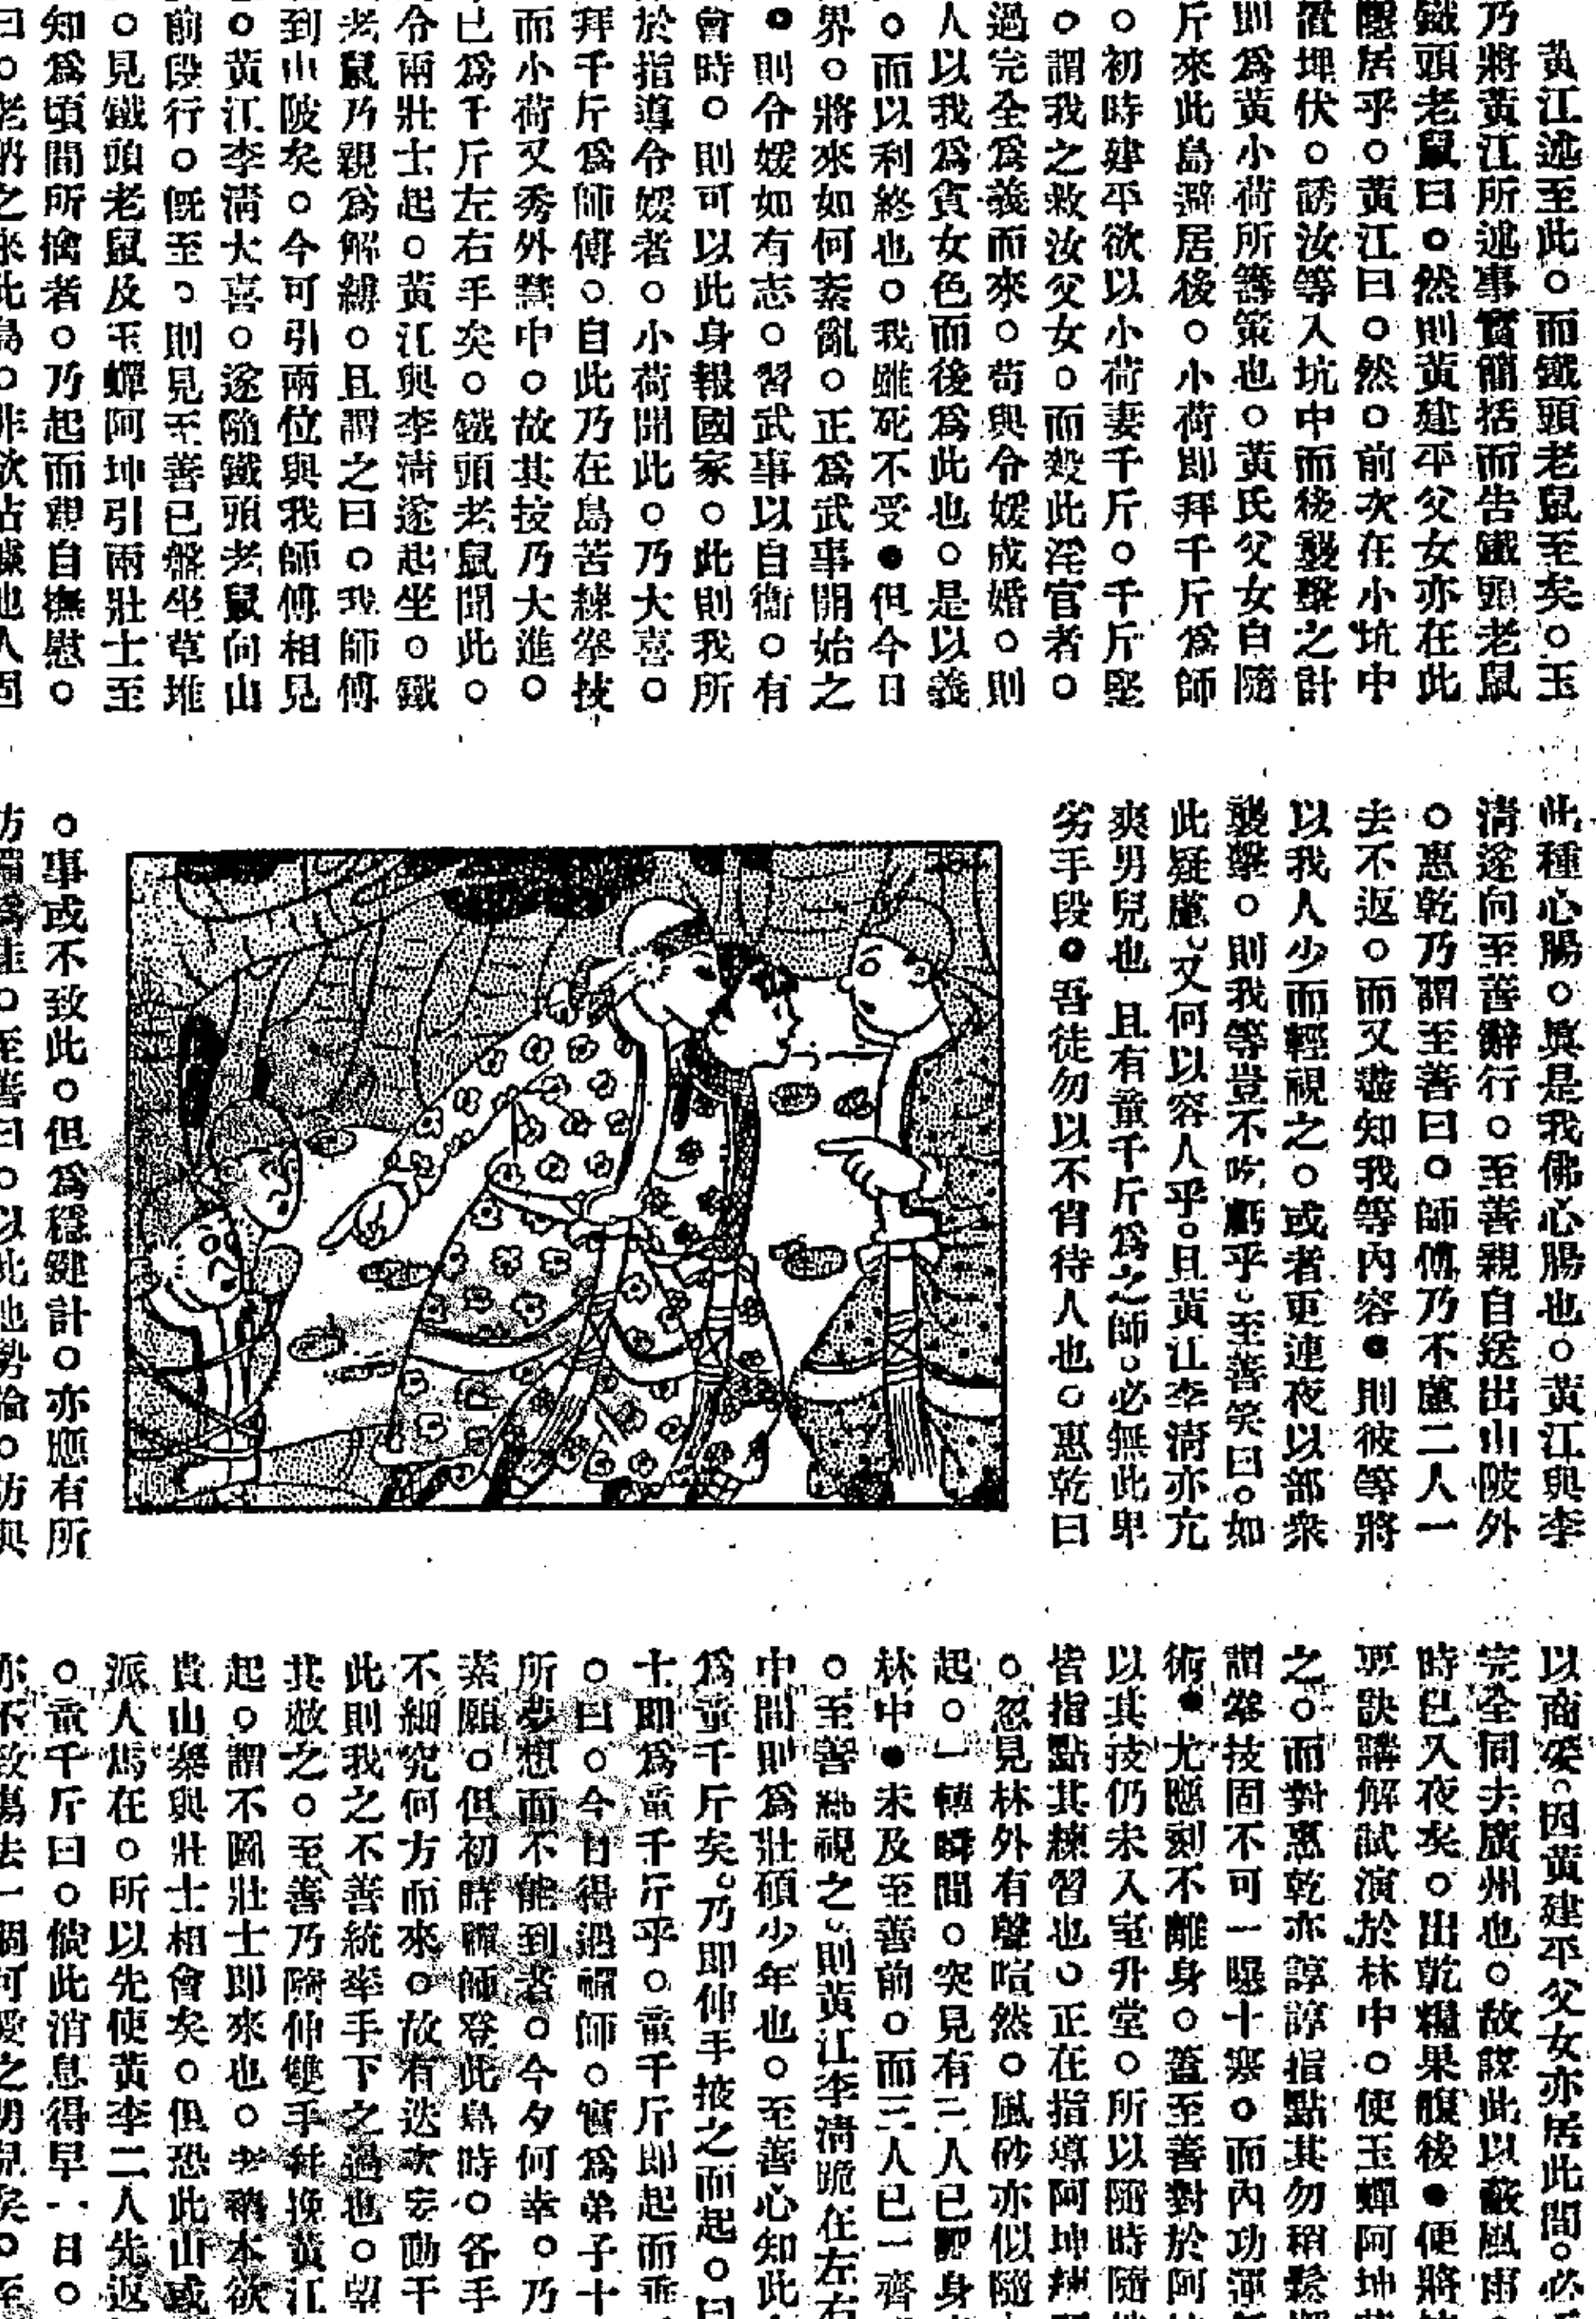 黃江述至此。而鐵頭老鼠至矣。玉
乃將黃江所述事實簡括而告鐵頭老鼠
鐵頭老鼠曰。然則黃建平父女亦在此
隱居乎。黃江曰。然。前次在小坑中
置埋伏。誘汝等入坑中而後襲擊之計
則爲黃小荷所籌策也。黃氏父女自隨
斤來此島避居後。小荷即拜千斤爲師
。初時建平欲以小荷妻千斤。千斤堅
。謂我之救汝父女。而殺此淫官者。
過完全爲義而來。苟與令媛成婚。則
人以我爲貪女色而後爲此也。是以義
。而以利終也。我雖死不受。但今日
界。將來如何紊亂。正爲武事開始之
。則令媛如有志。習武事以自衛。有
會時。則可以此身報國家。此則我所
於指導令媛者。小荷聞此。乃大喜。
拜千斤爲師傅。自此乃在島苦練拳技
而小荷又秀外慧中。故其技乃大進。
已爲千斤左右手矣。鐵頭老鼠聞此。
令兩壯士起。黃江與李淸遂起坐。鐵
老鼠乃親爲解縛。且謂之曰。我師傅
到山陂矣。今可引兩位與我師傅相見
。黃江李淸大喜。遂隨鐵頭老鼠向山
前段行。旣至。則見至善已盤坐草堆
。見鐵頭老鼠及玉蟬阿坤引兩壯士至
知爲頃間所擒者。乃起而親自撫慰。
此種心腸。眞是我佛心腸也。黃江與李
淸遂向至善辭行。至善親自送出山陂外
。惠乾乃謂至善曰。師傅乃不慮二人一
去不返。而又盡知我等內容。則彼等將
以我人少而輕視之。或者更連夜以部衆
襲擊。則我等豈不吃虧乎。至善笑曰。如
此疑慮。又何以容人乎。且黃江李淸亦亢
爽男兒也 且有童千斤爲之師。必無此卑
劣手段。吾徒勿以不肖待人也。惠乾曰
。事或不致此。但爲穩健計。亦應有所
以商笶。因黃建平父女亦居此間。必
完全同去廣州也。故謀此以蔽風雨
時已入夜矣。出乾糧果腹後。便將
訣講解試演於林中。使玉蟬阿坤
之。而對惠乾亦諄諄指點其勿稍鬆
謂拳技固不可一曝十寒。而內功運
術。尤應刻不離身。蓋至善對於阿
以其技仍未入室升堂。所以隨時隨
皆指點其練習也。正在指導阿坤
。忽見林外有聲喧然。風砂亦似隨
起。一轉瞬間。突見有三人已
林中。未及至善前。而三人已一齊
。至善熟視之。則黃江李淸跪在左右
中間則爲壯碩少年也。至善心知此
爲童千斤矣。乃即伸手掖之而起。曰
士即爲童千斤乎。童千斤即起而垂
。曰。今日得遇禪師。實爲弟子十
所夢想而不能到者。今夕何幸。乃
素願。但初時禪師登此島時。各手
不細究何方而來。故有迭次妄動干
此則我之不善統率手下之過也。望
其赦之。至善乃隨伸雙手挽黃江
起。謂不圖壯士即來也。老衲本欲
貴山寨與壯士相會矣。但恐此山或
派人馬在。所以先使黃李二人先返
。童千斤曰。倘此消息得早一日。